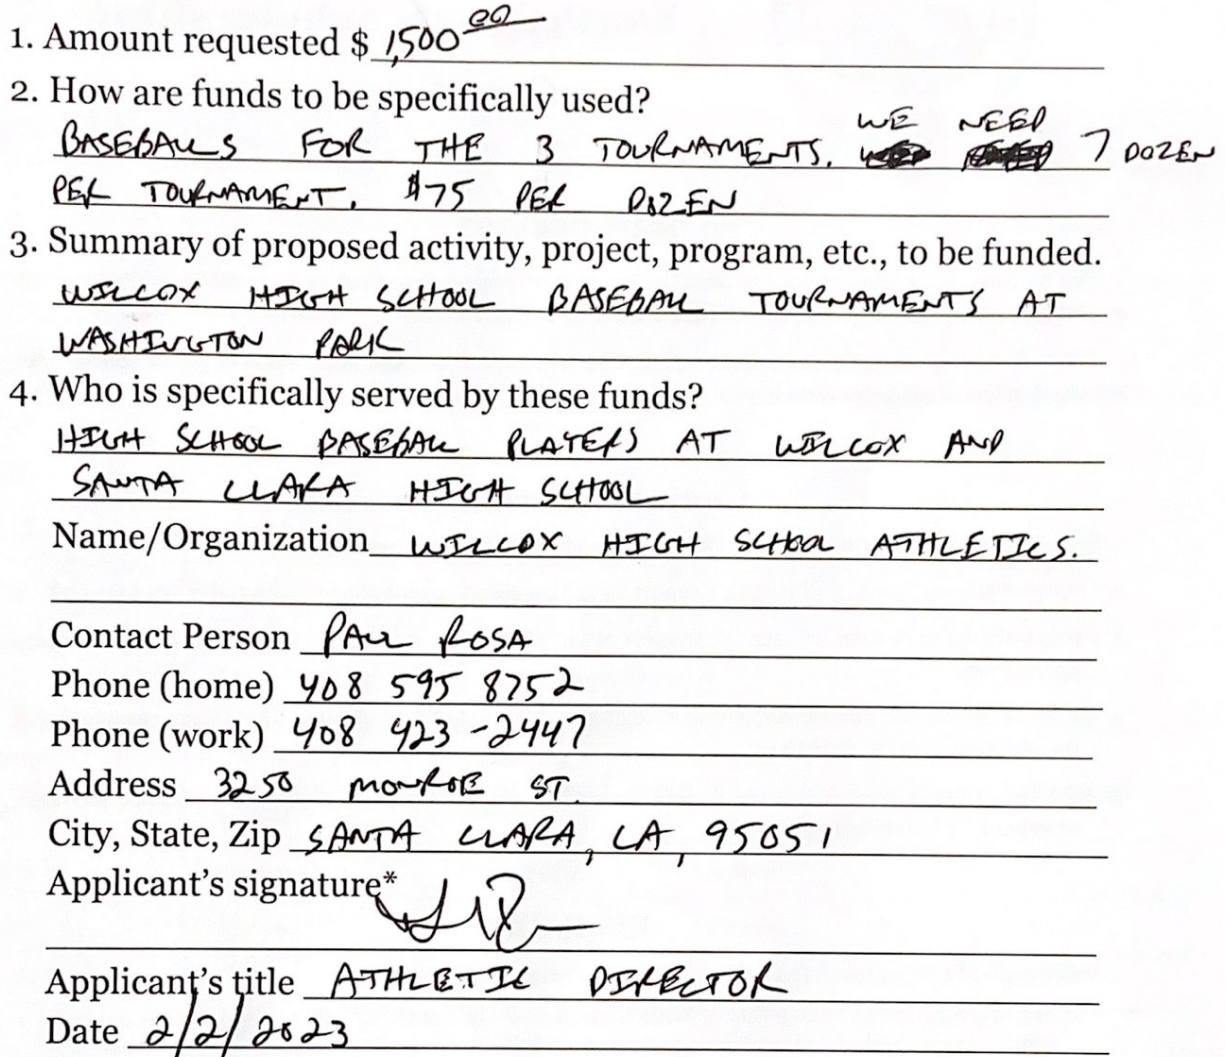 1. Amount requested $ 1,500 00
2. How are funds to be specifically used?
BASEBALLS FOR THE 3 TOURNAMENTS. WE NEED 7 DOZEN
PER TOURNAMENT. $75 PER DOZEN
3. Summary of proposed activity, project, program, etc., to be funded.
WILCOX HIGH SCHOOL BASEBALL TOURNAMENTS AT
WASHINGTON PARK
4. Who is specifically served by these funds?
HIGH SCHOOL BASEBALL PLAYERS AT WILCOX AND
SANTA CLARA HIGH SCHOOL
Name/Organization WILCOX HIGH SCHOOL ATHLETICS.
Contact Person PAUL ROSA
Phone (home) 408 595 8752
Phone (work) 408 423-2447
Address 3250 MONROE ST.
City, State, Zip SANTA CLARA, CA, 95051
Applicant's signature*
Applicant's title ATHLETIC DIRECTOR
Date 2/2/2023